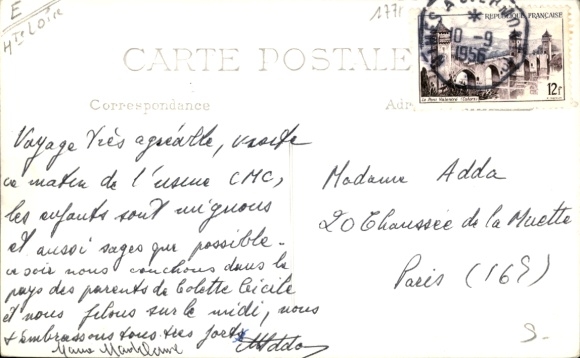 E
Hte Loire
1771
REPUBLIQUE FRANÇAISE
10-9
1956
12F
CARTE POSTALE
Correspondance
Adr
Voyage très agréable, visite
ce matin de l'usine CMC,
les enfants sont mignons
et aussi sages que possible.
ce soir nous couchons dans le
pays des parents de Colette Cécile
et nous filons sur le midi, nous
t'embrassons tous très fort
Adda
Madame Adda
20 Chaussée de la Muette
Paris (16e)